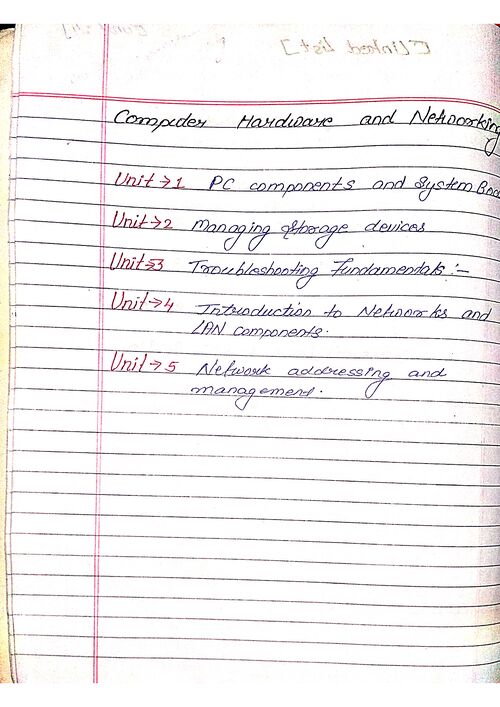 [Linked List]
Computer Hardware and Networking
Unit → 1 PC components and System Boa
Unit → 2 Managing Storage devices
Unit → 3 Troubleshooting Fundamentals :-
Unit → 4 Introduction to Networks and
LAN components.
Unit → 5 Network addressing and
management.